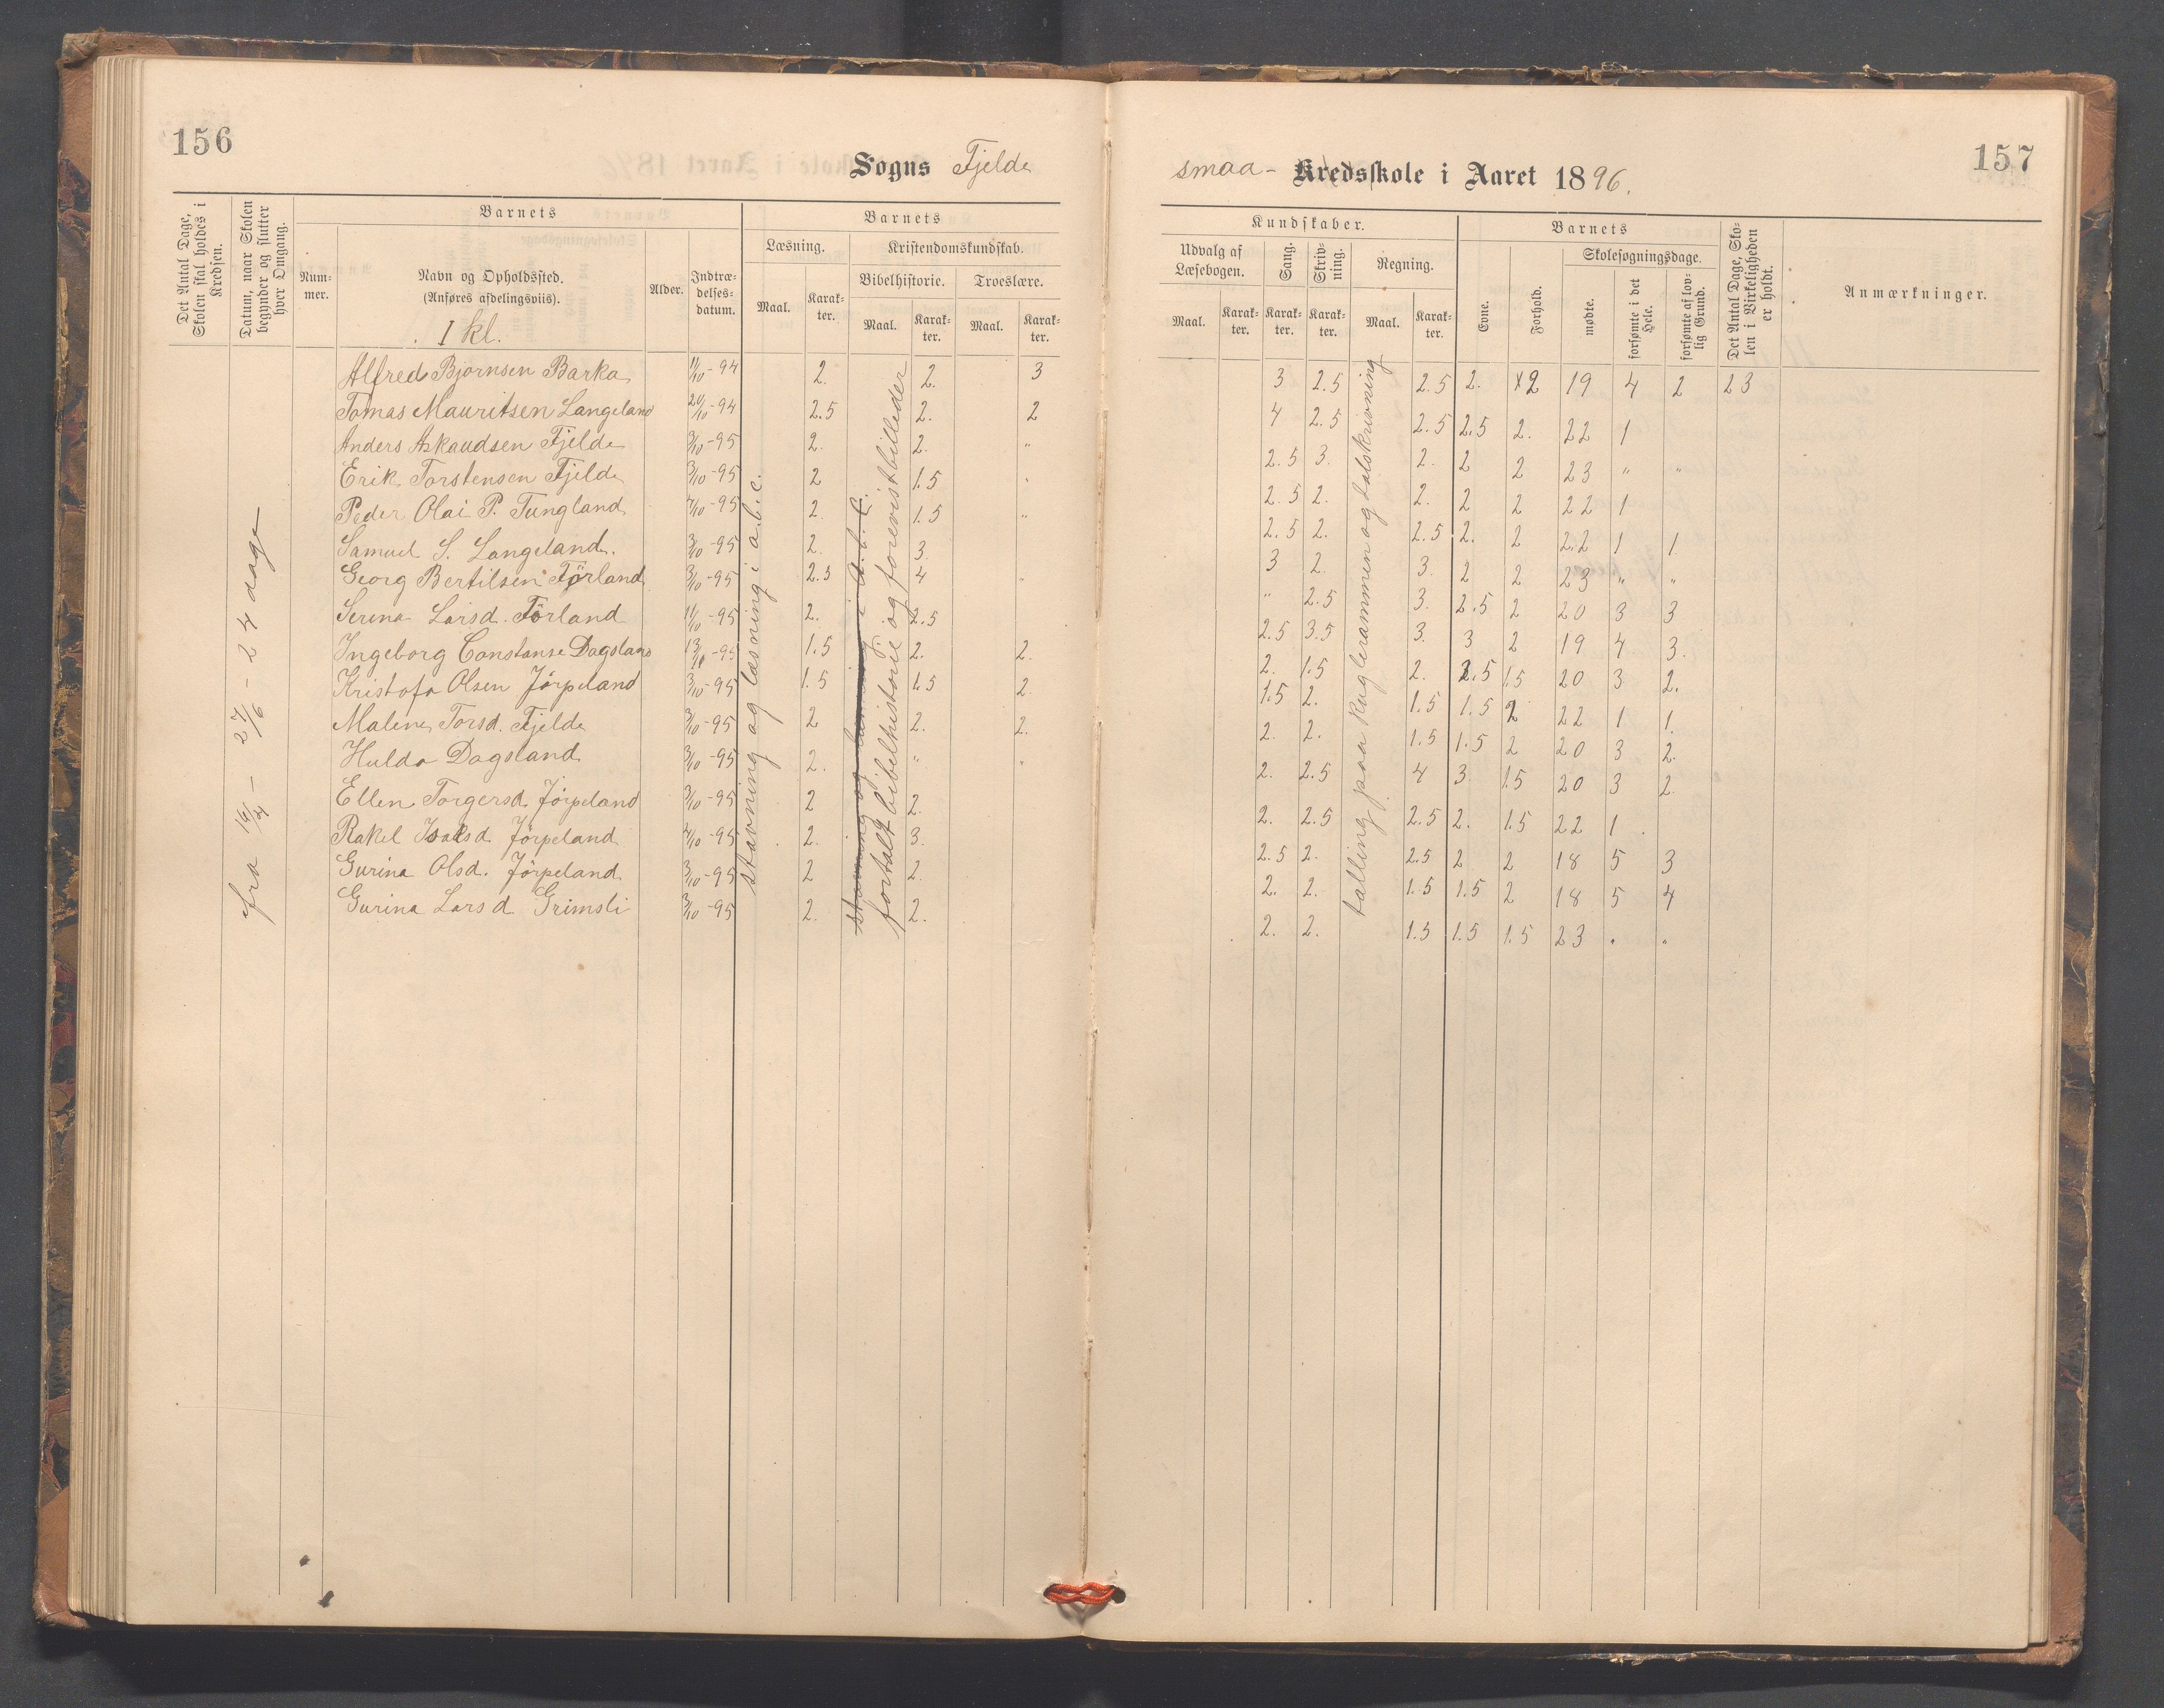 156
Sogns Fjelde
Det Antal Dage, Skolen skal holdes i Kredsen.
Datum, naar Skolen begynder og slutter hver Omgang.
Barnets
Num-mer.
Navn og Opholdssted.
(Anføres afdelingsviis).
I kl.
Alder.
Indtræ-delses-datum.
Barnets
Læsning.
Kristendomskundskab.
Bibelhistorie.
Troeslære.
Maal.
Karak-ter.
Maal.
Karak-ter.
Maal.
Karak-ter.
fra 16/4 - 27/6 - 24 dage
stavning og læsning i a.b.c.
stavning og læsning i A.b.C.
fortalt bibelhistorie og forevist billeder
Alfred Bjørnsen Barka 11/10-94 2. 2. 3
Tomas Mauritsen Langeland 20/10-94 2.5 2. 2
Anders Askaudsen Fjelde 3/10-95 2. 2. "
Erik Torstensen Fjelde 3/10-95 2 1.5 "
Peder Olai P. Tungland 7/10-95 2. 1.5 "
Samuel S. Langeland. 3/10-95 2. 3.
Georg Bertilsen Førland 3/10-95 2.5 4 "
Serina Larsd. Førland 11/10-95 2. 2.5
Ingeborg Constanse Dagsland 13/10-95 1.5 2. 2.
Kristofa Olsen Jørpeland 3/10-95 1.5 1.5 2.
Maline Torsd. Fjelde 3/10-95 2 2. 2.
Hulda Dagsland 3/10-95 2. " "
Ellen Torgersd. Jørpeland 3/10-95 2 2.
Rakel Isaksd. Jørpeland 7/10-95 2. 3.
Gurina Olsd. Jørpeland 3/10-95 2 2.
Gurina Larsd. Grimsli 3/10-95 2. 2.
157
smaa- Kredsskole i Aaret 1896.
Kundskaber.
Udvalg af Læsebogen.
Sang.
Skriv-ning.
Regning.
Maal.
Karak-ter.
Karak-ter.
Karak-ter.
Maal.
Karak-ter.
Barnets
Evne.
Forhold.
Skolesøgningsdage.
mødte.
forsømte i det Hele.
forsømte af lov-lig Grund.
Det Antal Dage, Sko-len i Virkeligheden er holdt.
Anmærkninger.
talling paa kuglerammen og talskrivning
3 2.5 2.5 2. x2 19 4 2 23
4 2.5 2.5 2.5 2. 22 1
2.5 3. 2. 2 2 23 " "
2.5 2. 2. 2 2 22 1
2.5 2. 2.5 2. 2 22 1 1
3 2. 3. 2 2 23 " "
" 2.5 3. 2.5 2 20 3 3
2.5 3.5 3. 3 2 19 4 3.
2. 1.5 2. 2.5 1.5 20 3 2.
1.5 2. 1.5 1.5 2 22 1 1.
2. 2. 1.5 1.5 2 20 3 2.
2. 2.5 4 3. 1.5 20 3 2.
2. 2.5 2.5 2. 1.5 22 1
2.5 2. 2.5 2 2 18 5 3
2. 2. 1.5 1.5 2 18 5 4
2. 2. 1.5 1.5 1.5 23 " "